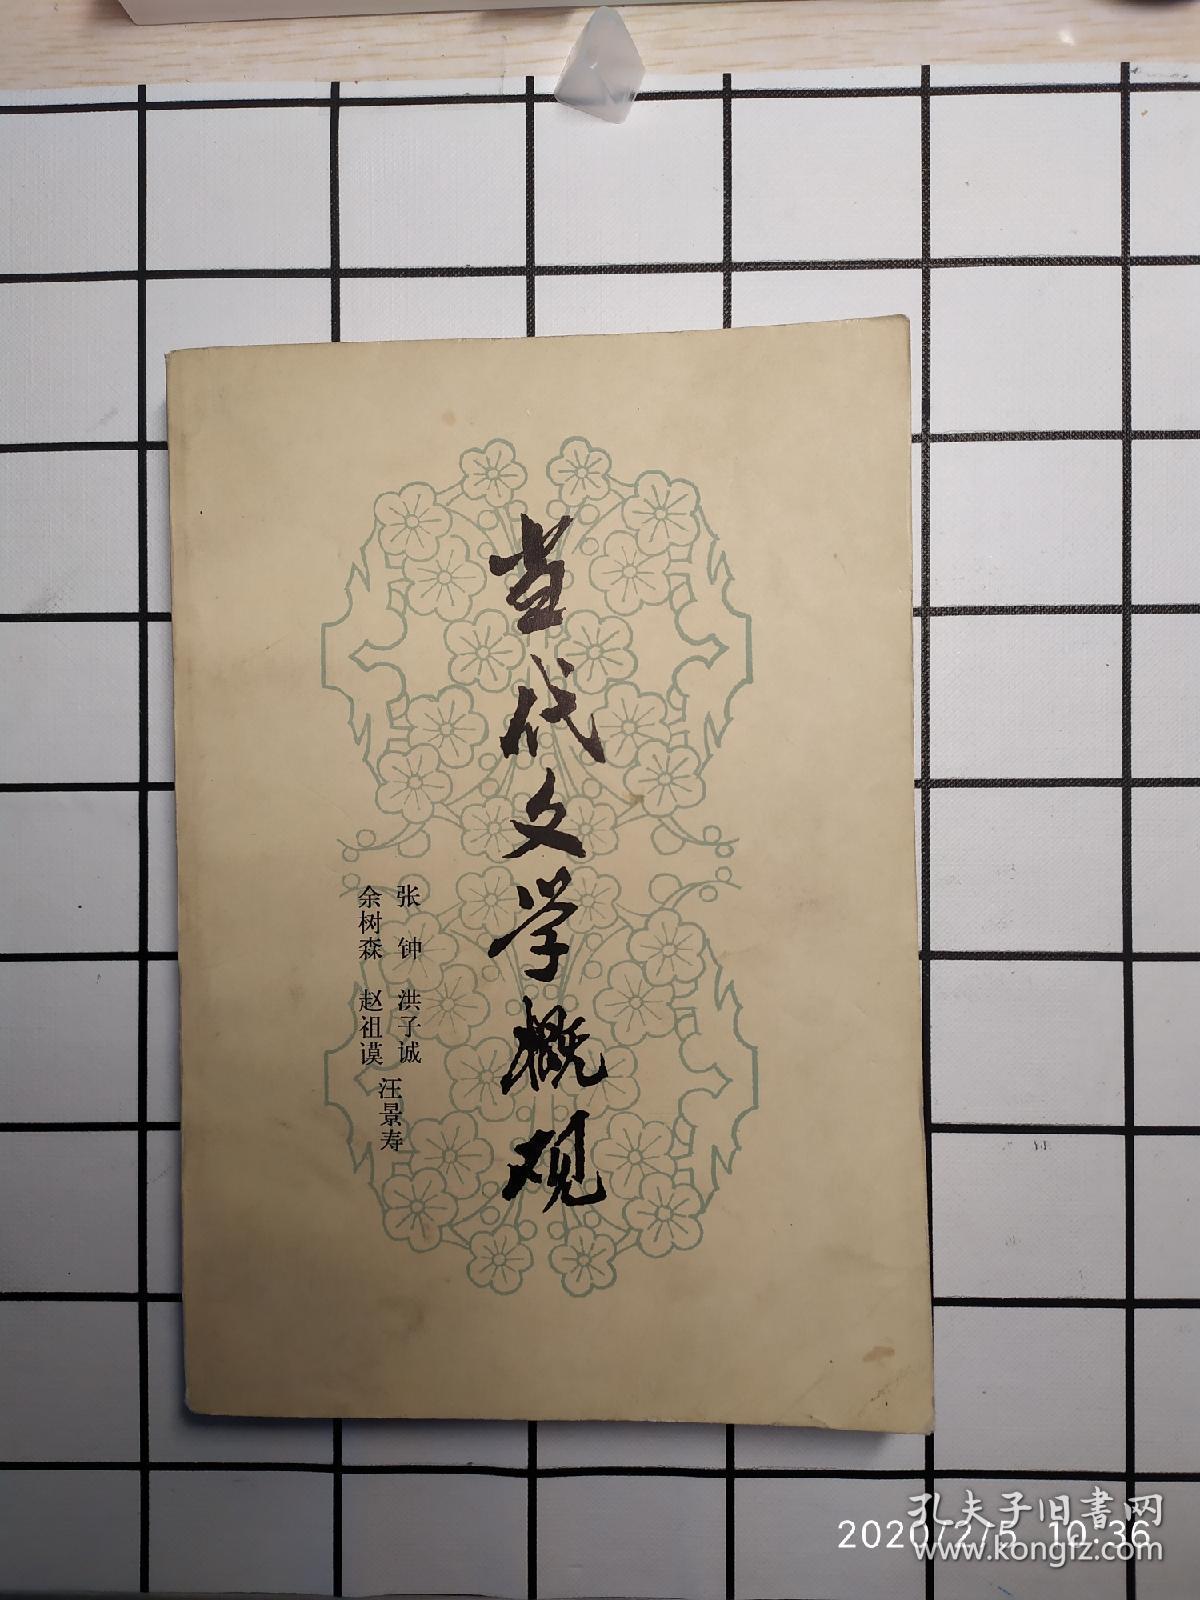 当代文学概观
张钟 洪子诚
余树森 赵祖谟
汪景寿
孔夫子旧書网
2020/2/5 10:36
www.kongfz.com